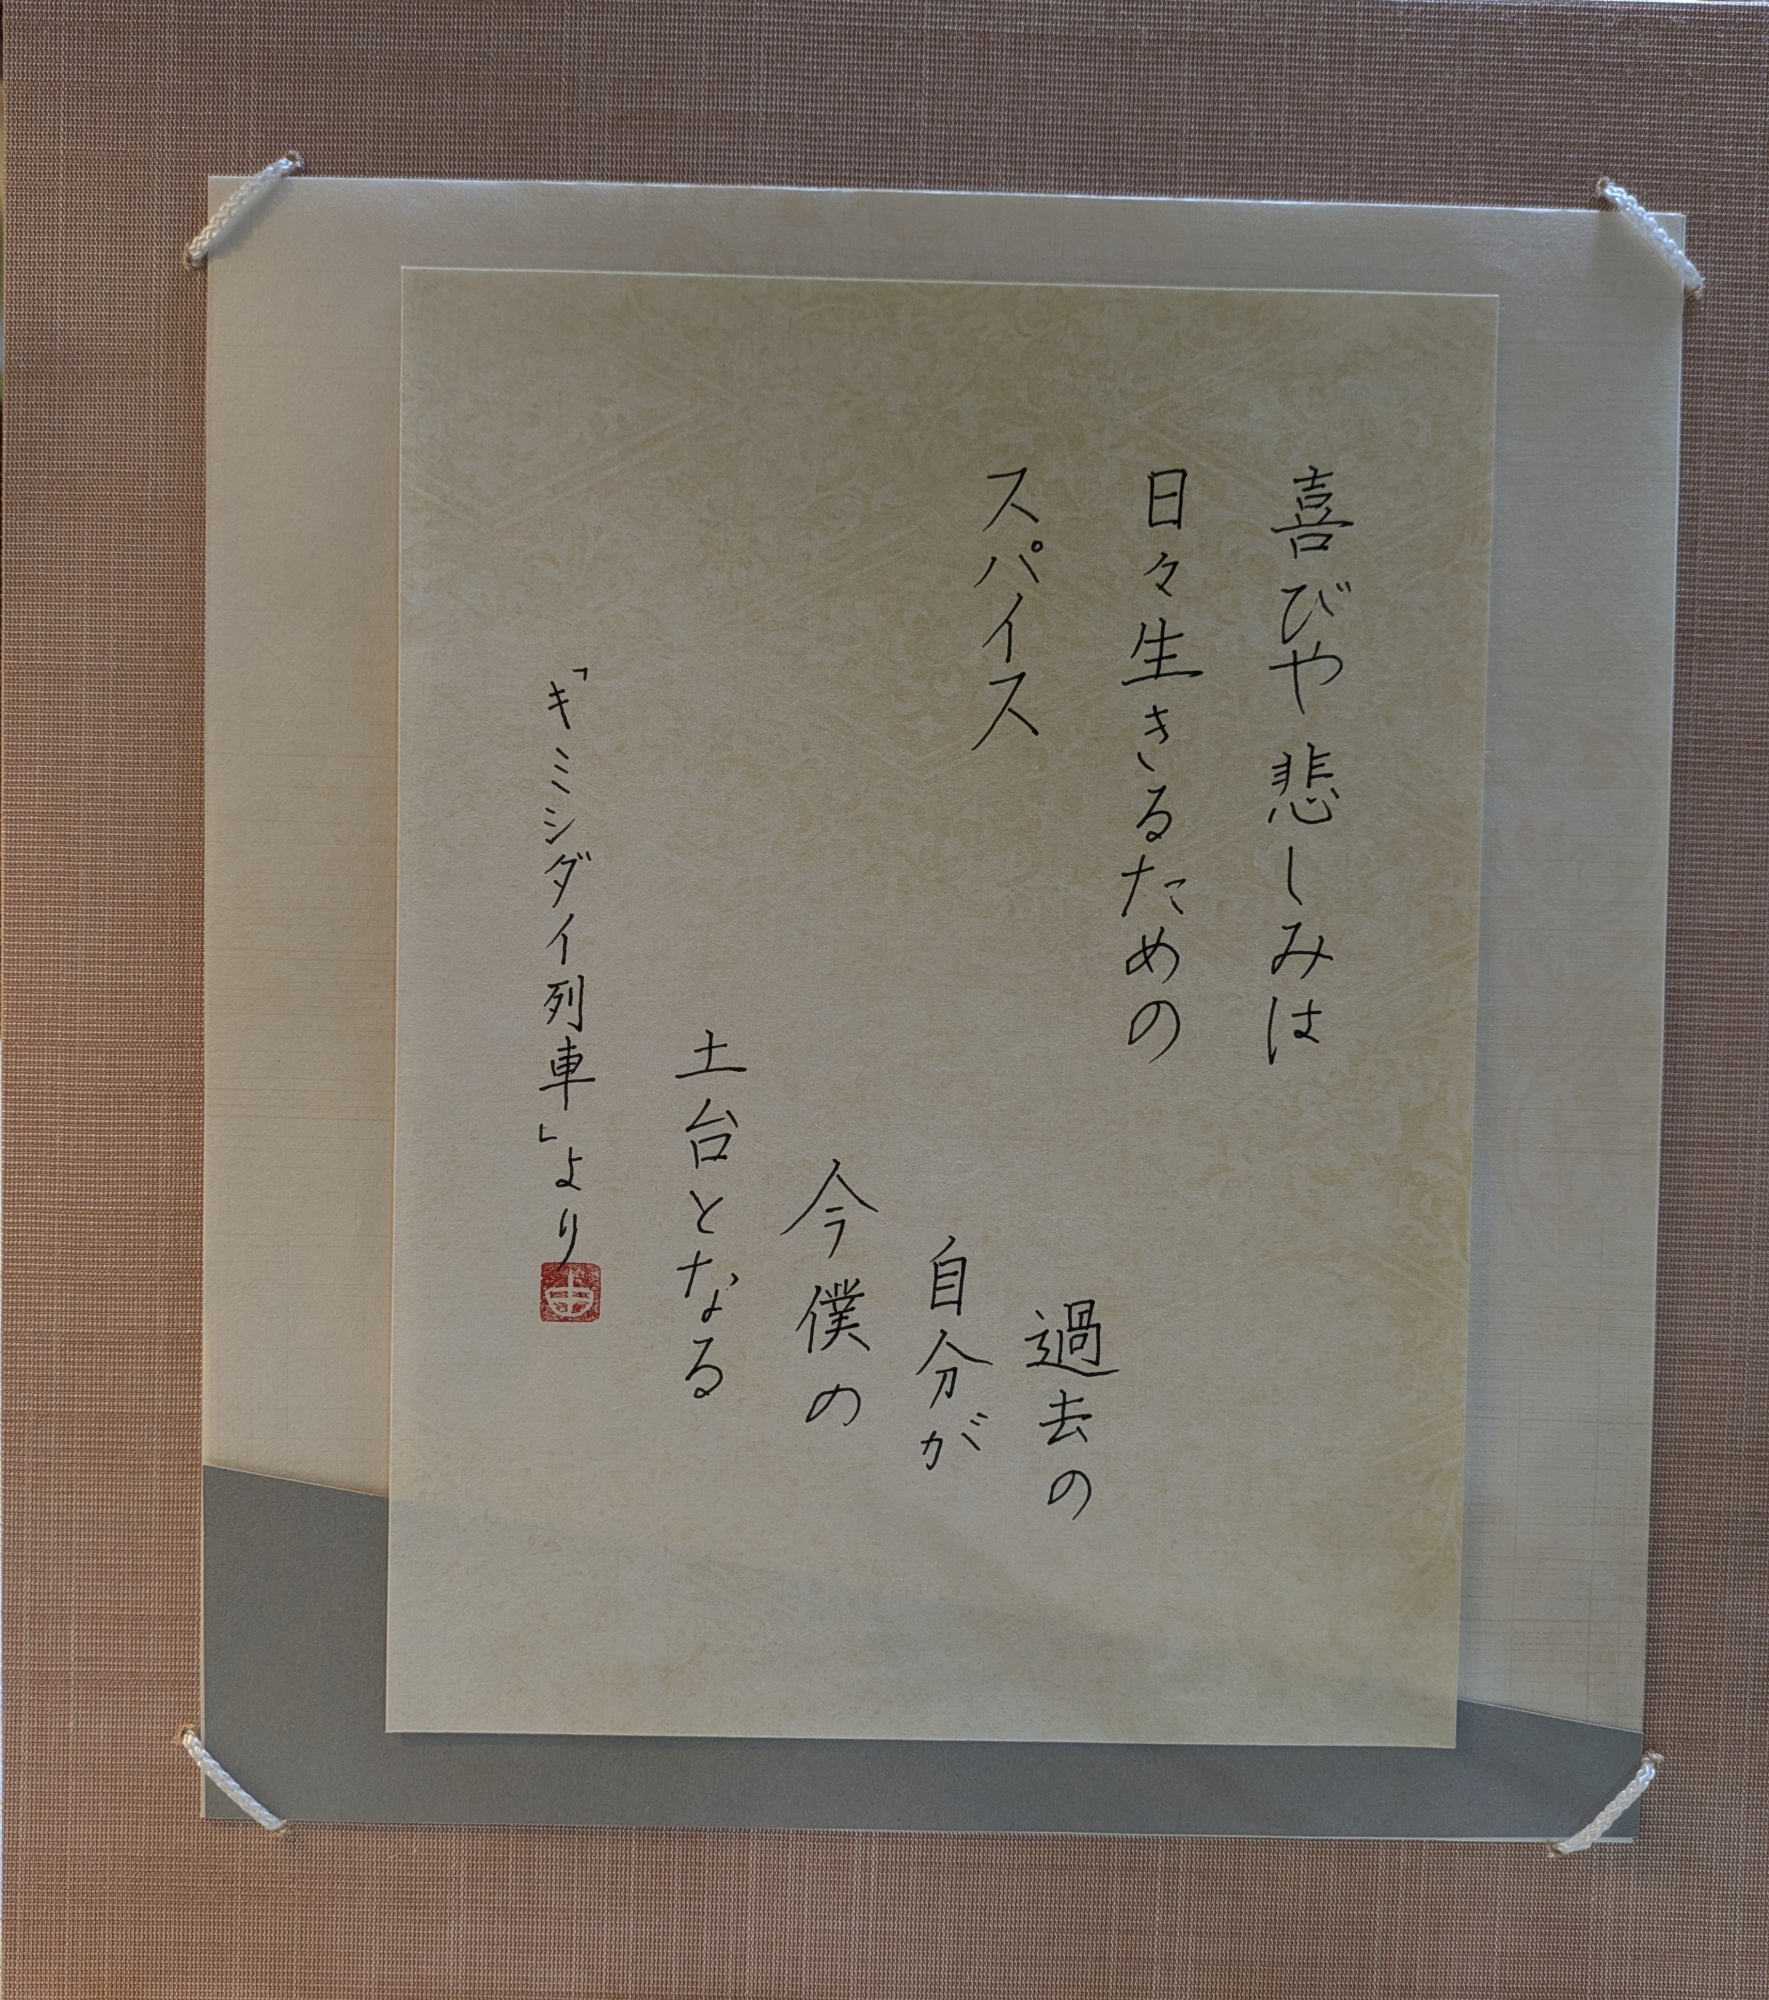 喜びや悲しみは
日々生きるための
スパイス
過去の
自分が
今僕の
土台となる
「キミシダイ列車」より